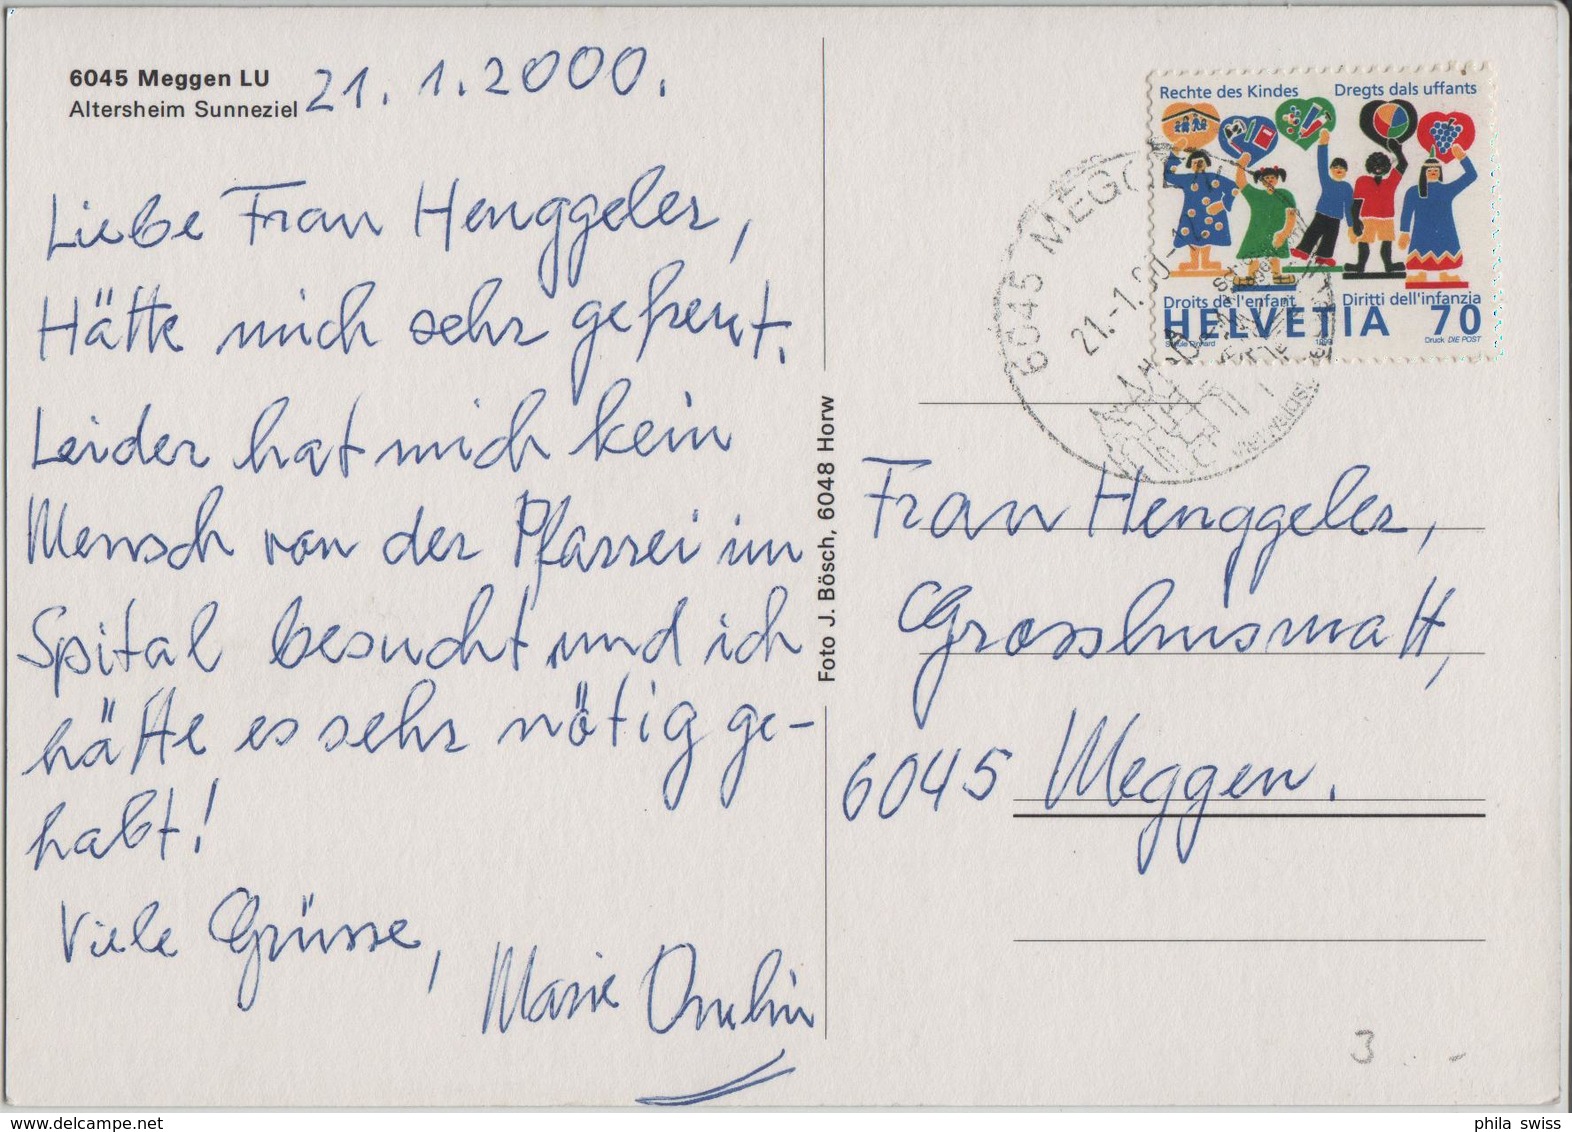 6045 Meggen LU
Altersheim Sunneziel
21. 1. 2000.
Liebe Frau Henggeler,
Hätte mich sehr gefreut.
Leider hat mich kein
Mensch von der Pfarrei im
Spital besucht und ich
hätte es sehr nötig ge-
habt!
Viele Grüsse,
Marie Omlin
Foto J. Bösch, 6048 Horw
Rechte des Kindes Dregts dals uffants
Droits de l'enfant Diritti dell'infanzia
HELVETIA 70
Druck DIE POST
6045 MEGGEN
21.-1.00-
Frau Henggeler,
Grosshusmatt,
6045 Meggen.
3
phila swiss